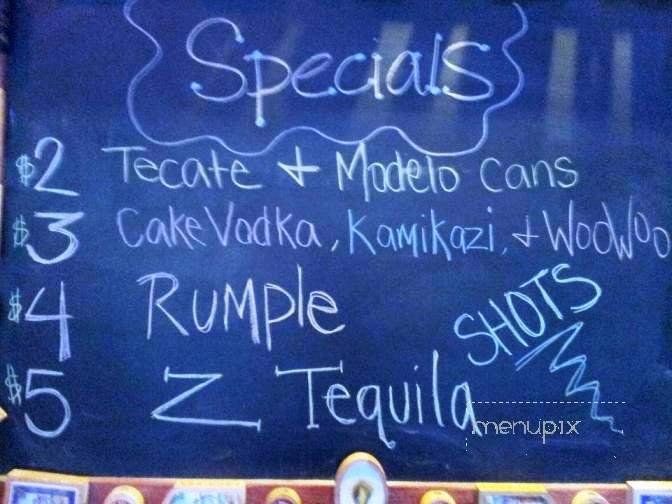 Specials
$2 Tecate + Modelo cans
$3 Cake Vodka, Kamikazi, + WooWoo
$4 Rumple
SHOTS
$5 Z Tequila
menupix